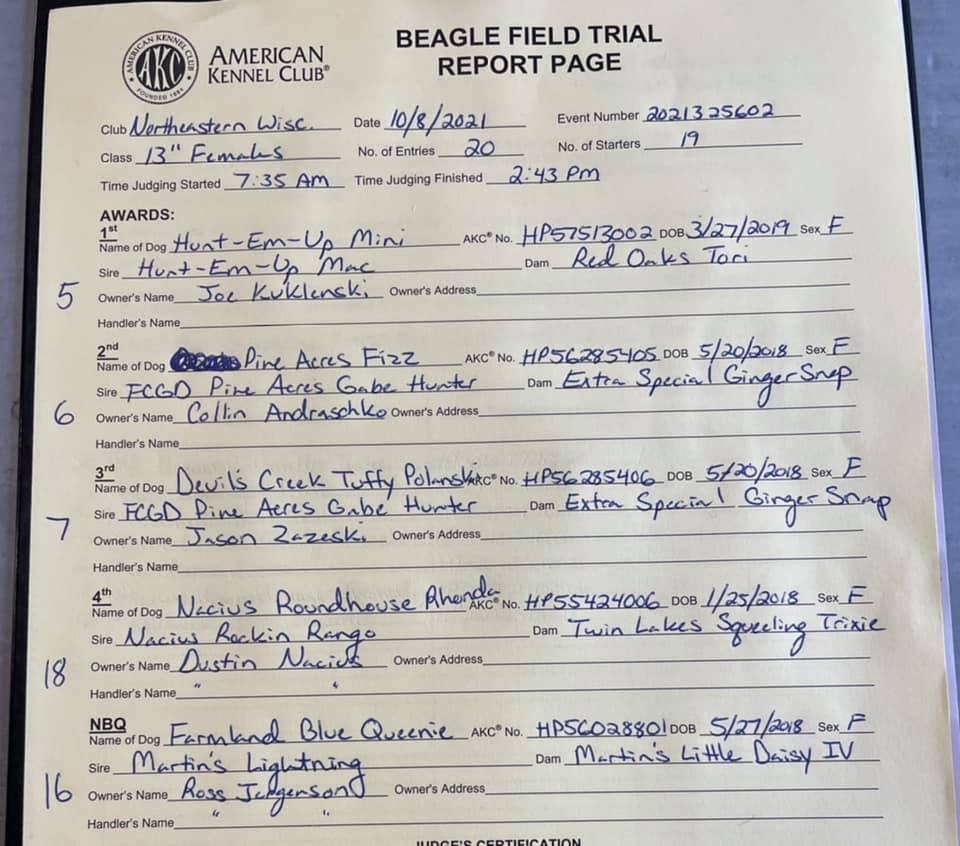 AMERICAN KENNEL CLUB
AKC
FOUNDED 1884
AMERICAN
KENNEL CLUB®
BEAGLE FIELD TRIAL
REPORT PAGE
Club Northeastern Wisc. Date 10/8/2021 Event Number 2021325602
Class 13" Females No. of Entries 20 No. of Starters 19
Time Judging Started 7:35 AM Time Judging Finished 2:43 PM
AWARDS:
1st
Name of Dog Hunt-Em-Up Mini AKC® No. HP57513002 DOB 3/27/2019 Sex F
Sire Hunt-Em-Up Mac Dam Red Oaks Tori
5 Owner's Name Joe Kuklenski Owner's Address
Handler's Name
2nd
Name of Dog Pine Acres Fizz AKC® No. HP56285405 DOB 5/20/2018 Sex F
Sire FCGD Pine Acres Gabe Hunter Dam Extra Special Ginger Snap
6 Owner's Name Collin Andraschko Owner's Address
Handler's Name
3rd
Name of Dog Devils Creek Tuffy Polanski AKC® No. HP56285406 DOB 5/20/2018 Sex F
Sire FCGD Pine Acres Gabe Hunter Dam Extra Special Ginger Snap
7 Owner's Name Jason Zazeski Owner's Address
Handler's Name
4th
Name of Dog Nacius Roundhouse Rhonda AKC® No. HP55424006 DOB 1/25/2018 Sex F
Sire Nacius Rockin Rango Dam Twin Lakes Squeeling Trixie
18 Owner's Name Dustin Nacius Owner's Address
Handler's Name " "
NBQ
Name of Dog Farmland Blue Queenie AKC® No. HP56028801 DOB 5/27/2018 Sex F
Sire Martin's Lightning Dam Martin's Little Daisy IV
16 Owner's Name Ross Owner's Address
Handler's Name " "
JUDGE'S CERTIFICATION